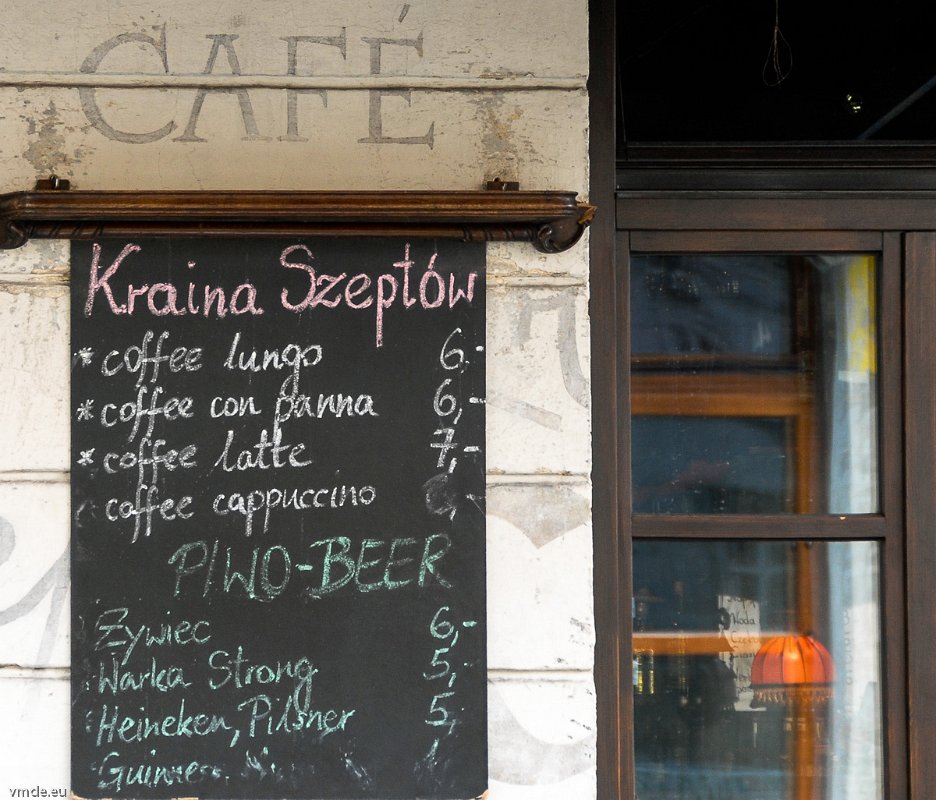 CAFÉ
Kraina Szeptów
* coffee lungo 6,-
* coffee con panna 6,-
* coffee latte 7,-
coffee cappuccino
PIWO-BEER
Żywiec 6,-
Warka Strong 5,-
Heineken, Pilsner 5,-
Guinness
Woda
vmde.eu